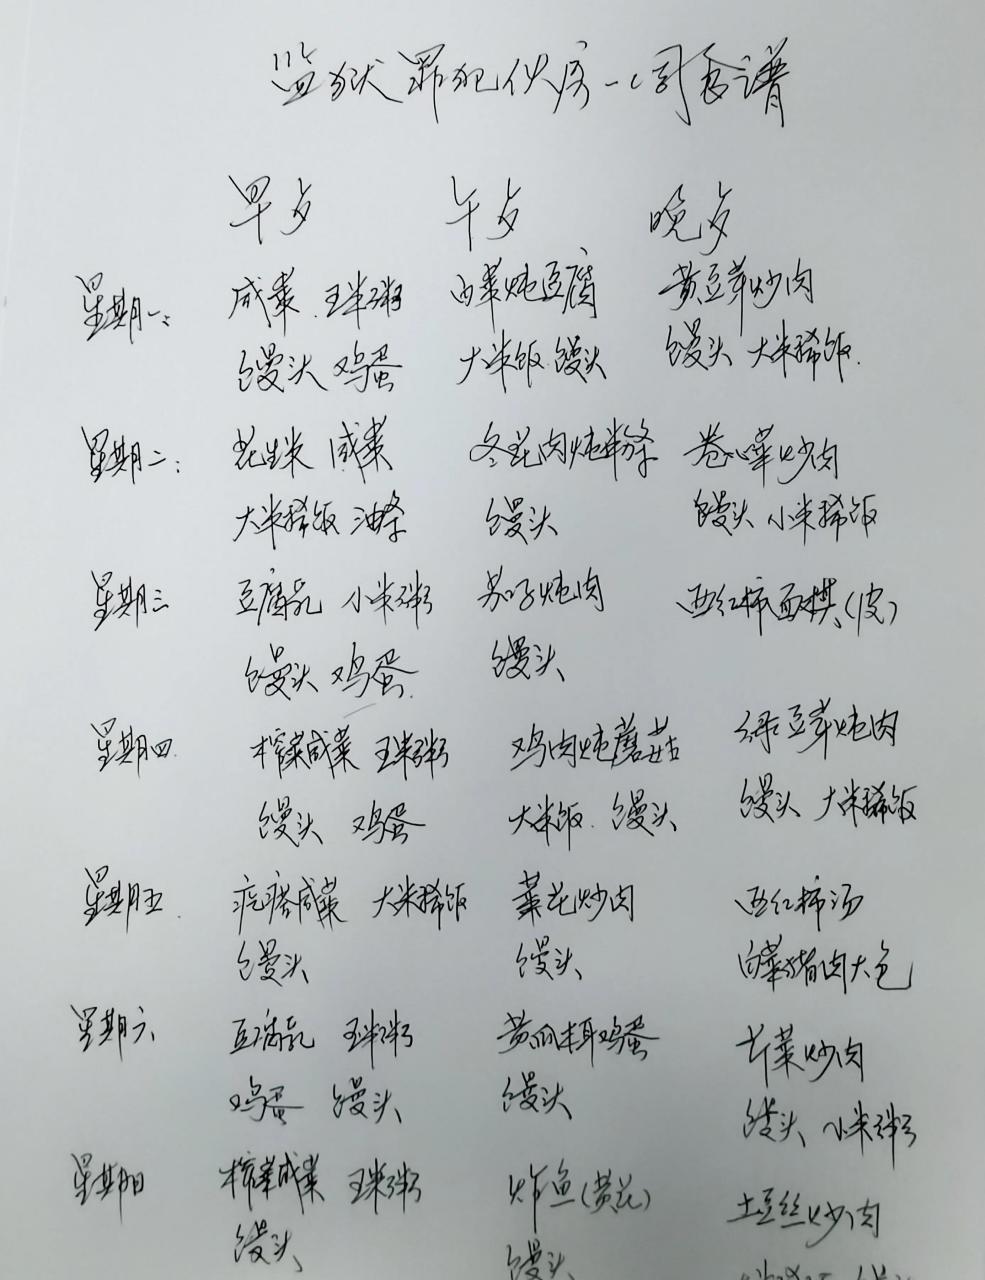 监狱罪犯伙房一周食谱
早点 午点 晚点
星期一: 咸菜 玉米粥 白菜炖豆腐 黄豆芽炒肉
馒头 鸡蛋 大米饭 馒头 馒头 大米稀饭
星期二: 花生米 咸菜 冬瓜肉炖粉条 卷心菜炒肉
大米稀饭 油条 馒头 馒头 小米稀饭
星期三 豆腐乳 小米粥 茄子炖肉 西红柿面棋(皮)
馒头 鸡蛋 馒头
星期四 榨菜咸菜 玉米粥 鸡肉炖蘑菇 绿豆芽炖肉
馒头 鸡蛋 大米饭 馒头 馒头 大米稀饭
星期五 疙瘩咸菜 大米稀饭 菜花炒肉 西红柿汤
馒头 馒头 白菜猪肉大包
星期六 豆腐乳 玉米粥 黄瓜木耳鸡蛋 芹菜炒肉
鸡蛋 馒头 馒头 馒头 小米粥
星期日 榨菜咸菜 玉米粥 炸鱼(黄花) 土豆丝炒肉
馒头 馒头